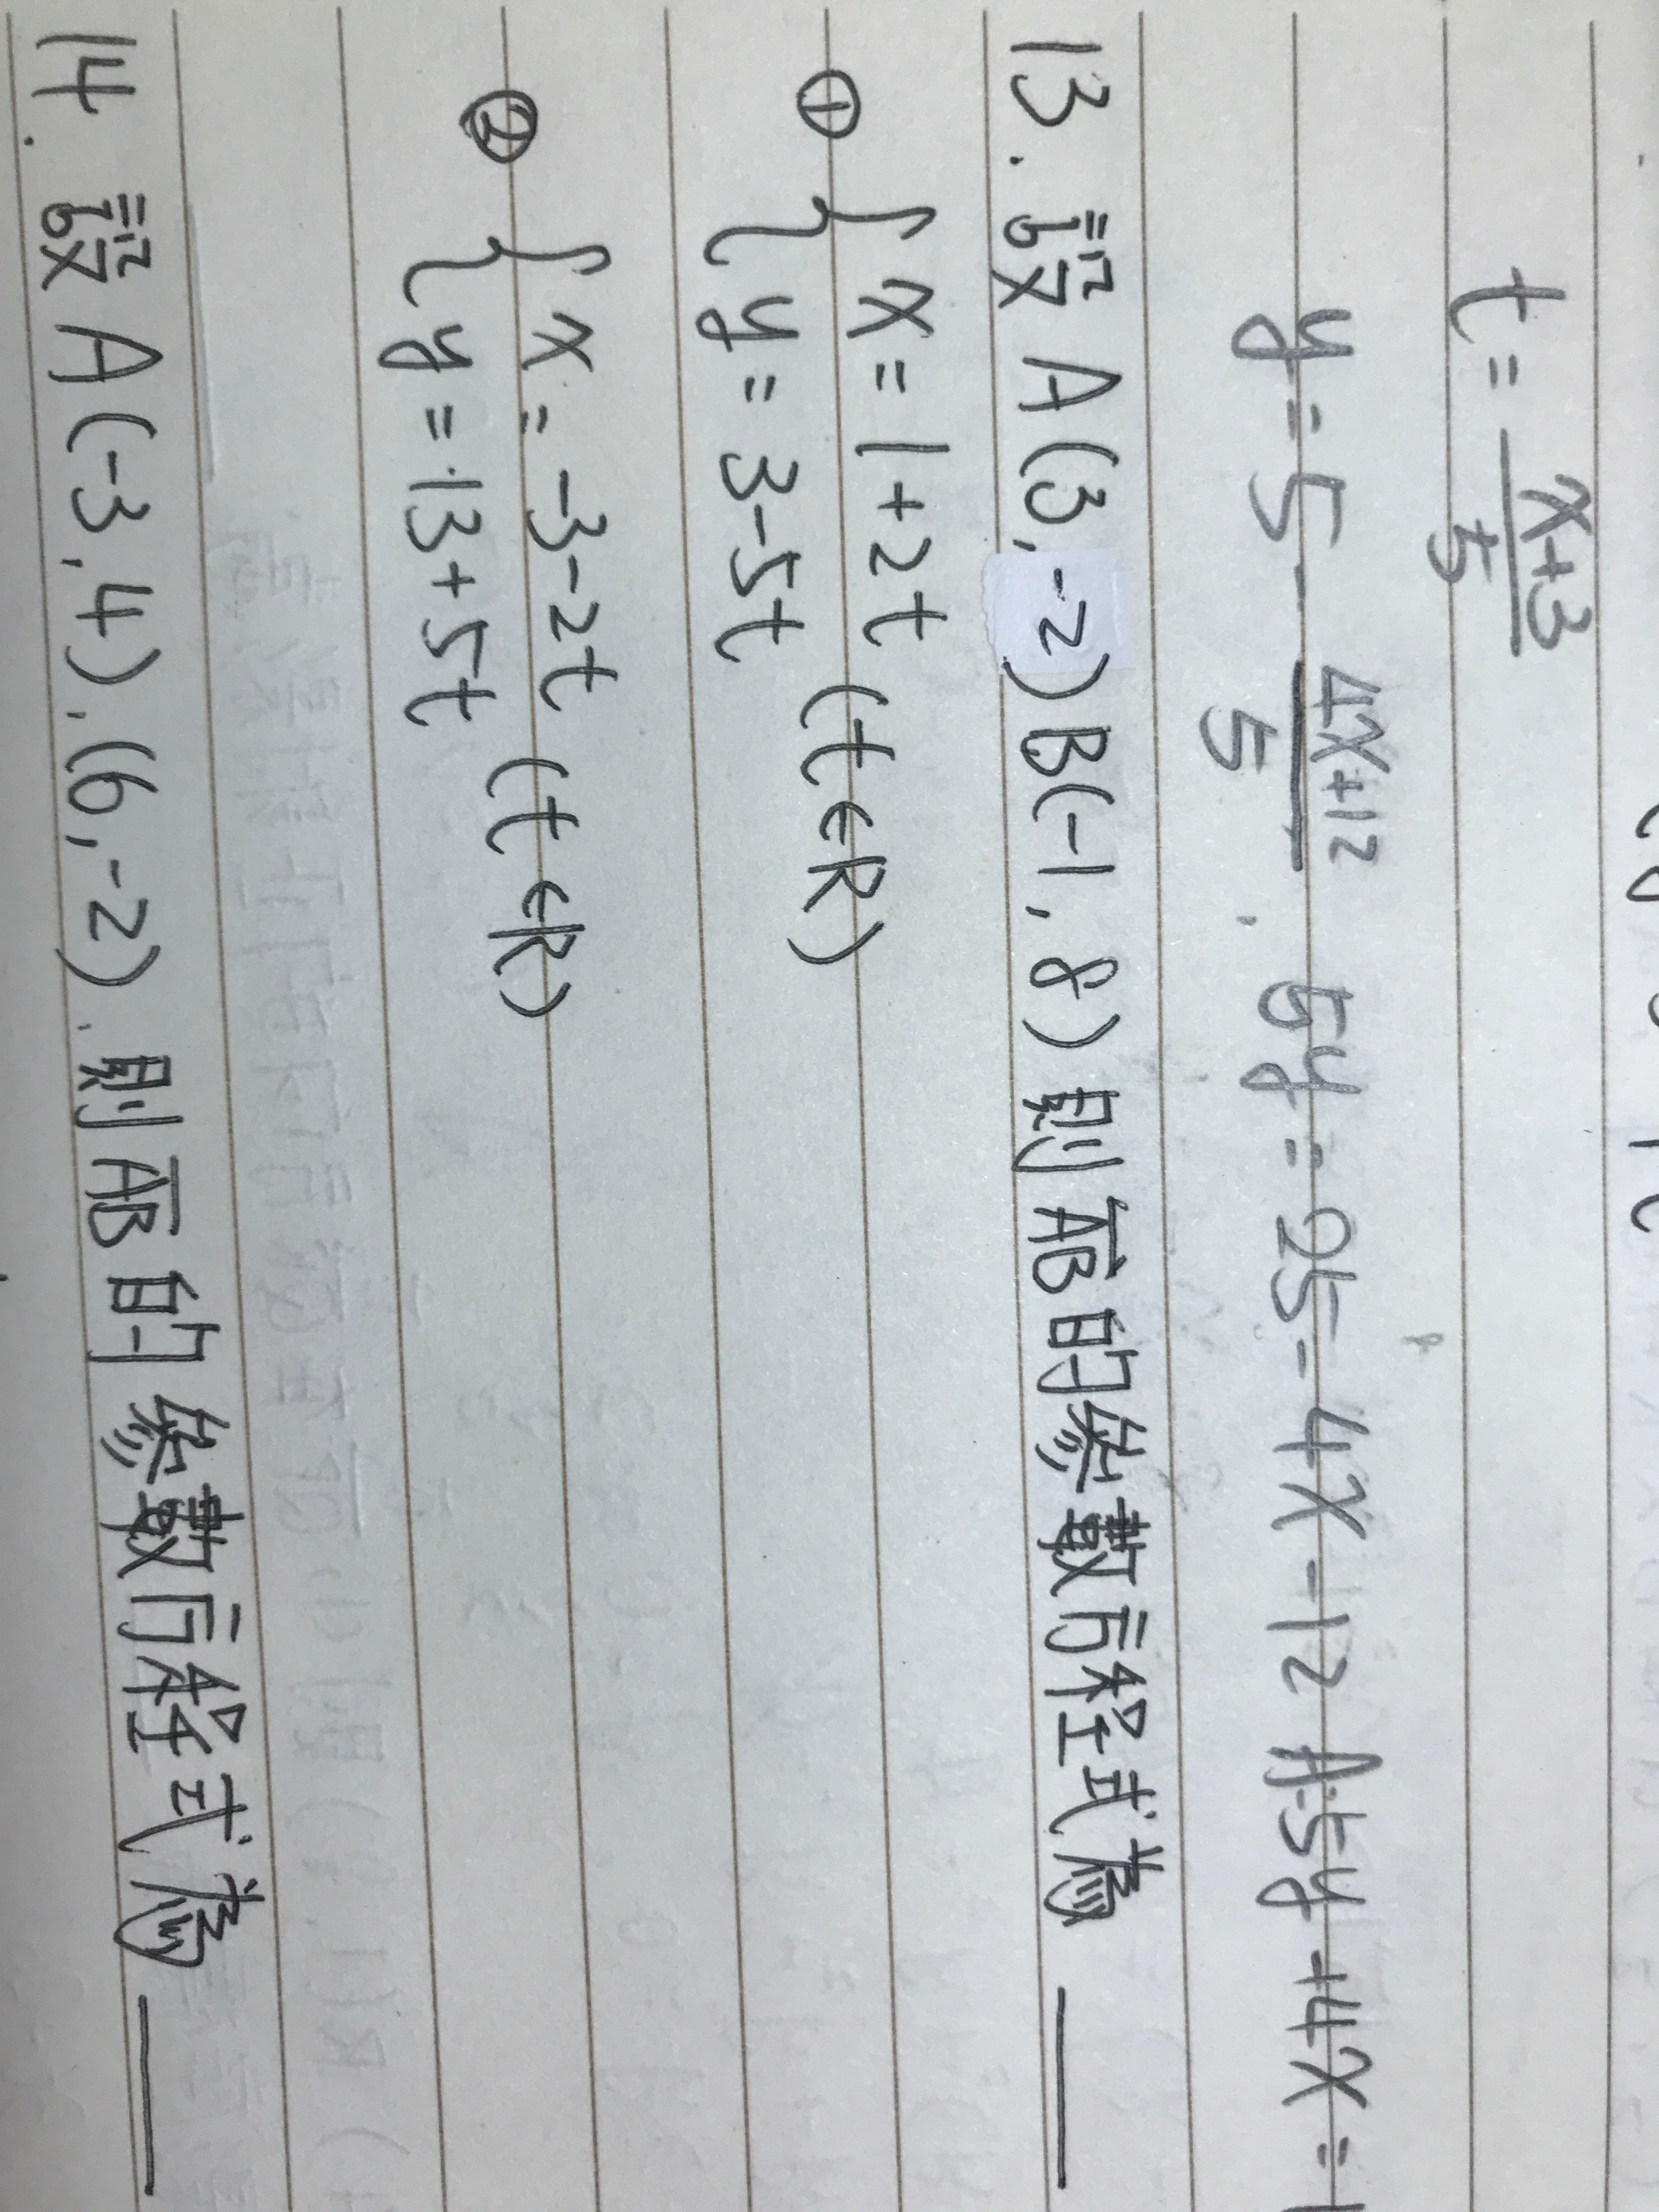 t = x+3/5
y = 5 - 4x+12/5 . 5y = 25-4x-12 A:5y+4x=1
13. 設 A(3,-2)B(-1,8) 則 AB 的參數方程式為 ___
① { x = 1+2t
y = 3-5t (t∈R)
② { x = -3-2t
y = 13+5t (t∈R)
14. 設 A(-3,4).(6,-2).則 AB 的參數方程式為 ___